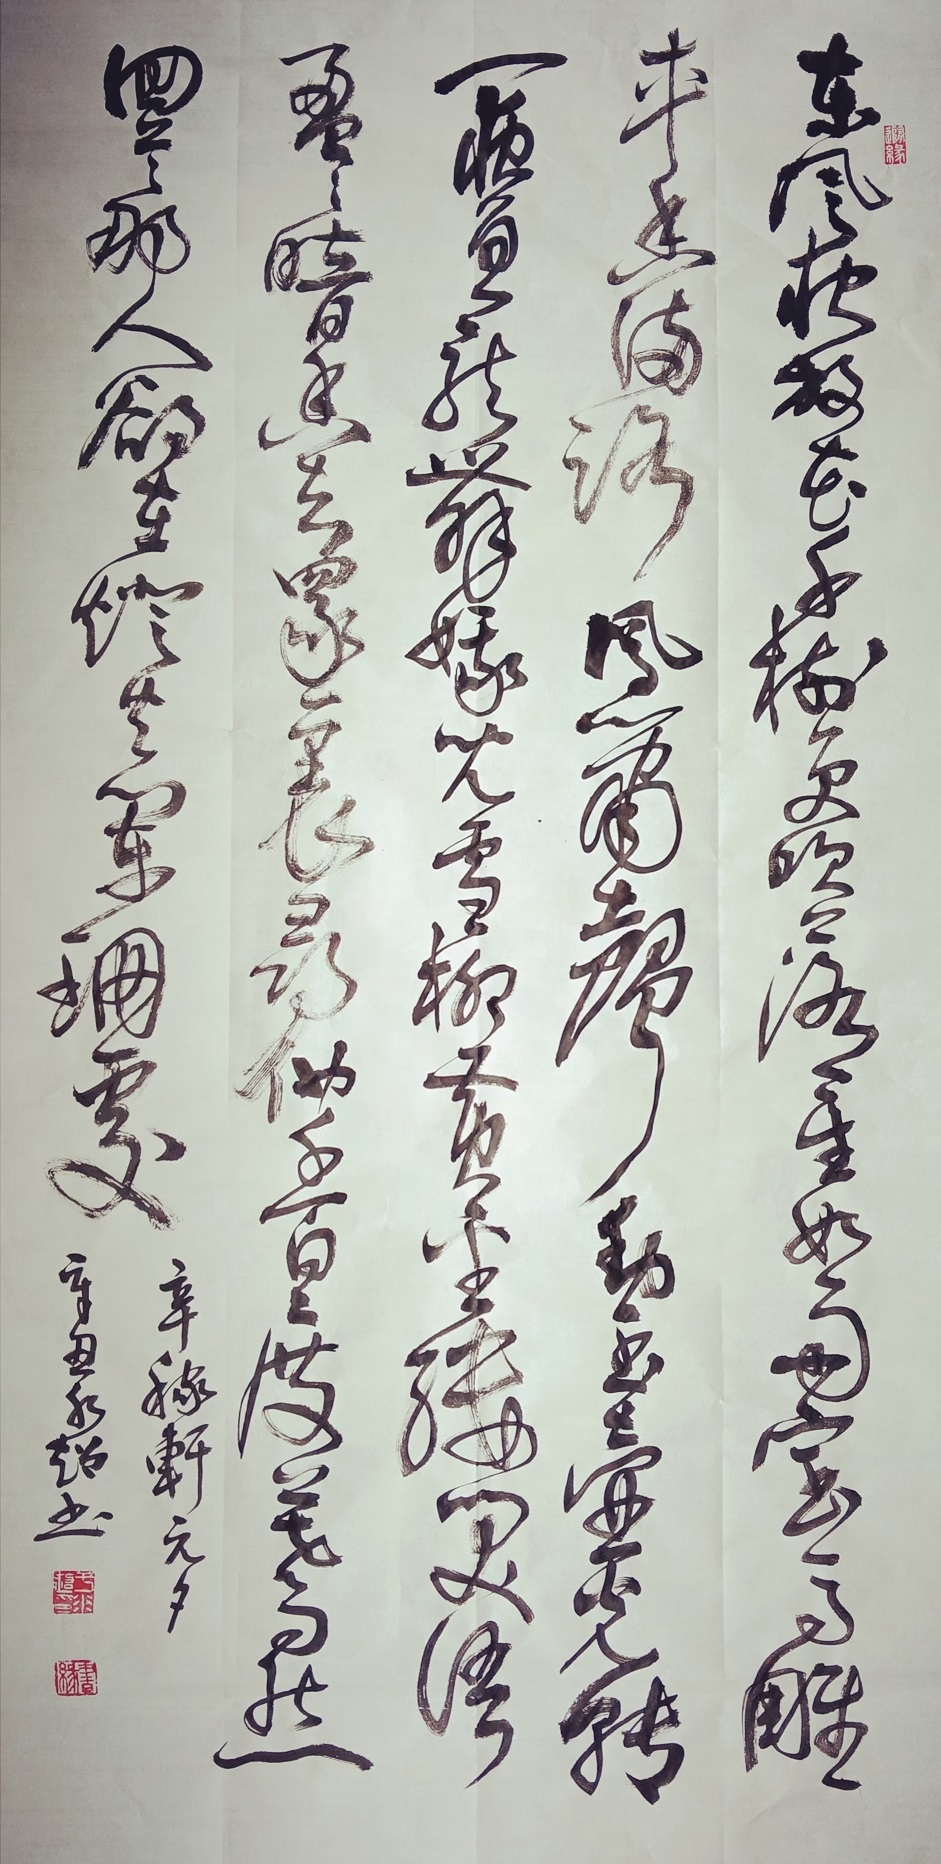 東風夜放花千樹更吹落星如雨寶馬雕
車香滿路鳳簫聲動玉壺光轉
一夜魚龍舞蛾兒雪柳黃金縷笑語
盈盈暗香去眾裏尋他千百度驀然
回首那人卻在燈火闌珊處
辛稼軒元夕
辛丑永超书